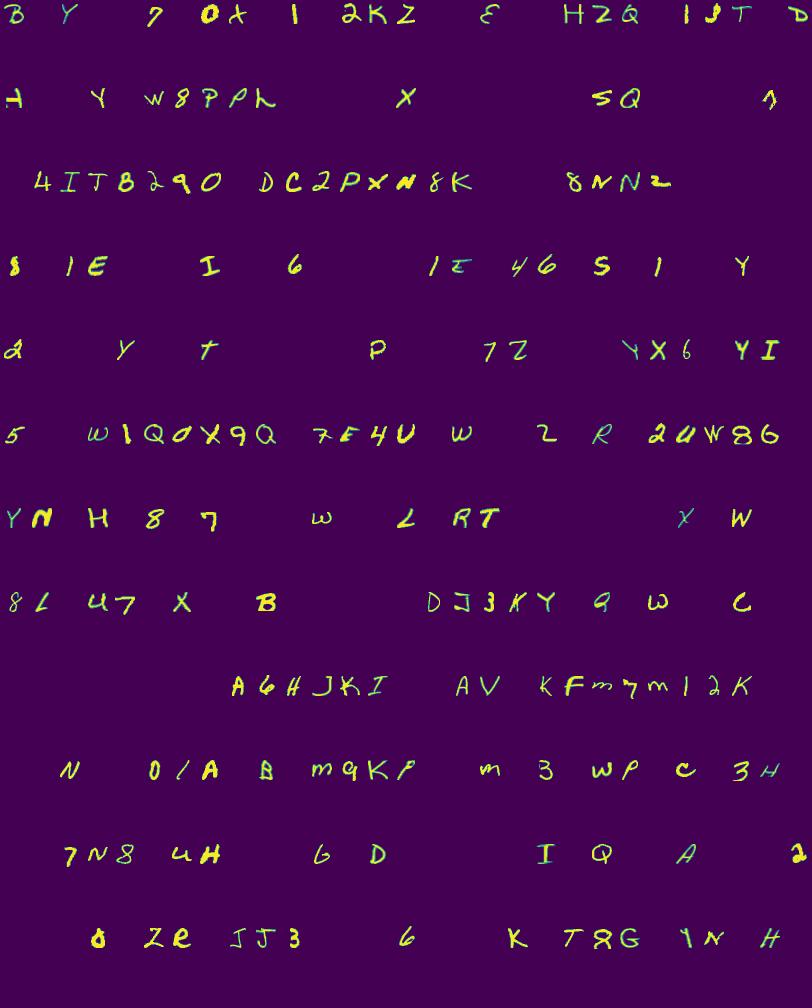 B Y 7 0X 1 2KZ E HZQ 1JT D
H Y W8PPL X SQ 1
4ITB290 DC2PXN8K 8NN2
8 1E I 6 1E 46 S 1 Y
2 Y T P 7Z YX6 YI
5 W1Q0X9Q 7E4U W 2 R 2UW86
YN H 8 7 W L RT X W
8L U7 X B DJ3KY Q W C
A6HJKI AV KFM7M12K
N 01A B M9KP M 3 WP C 3H
7N8 UH G D I Q A 2
0 ZR JJ3 6 K T8G 1N H